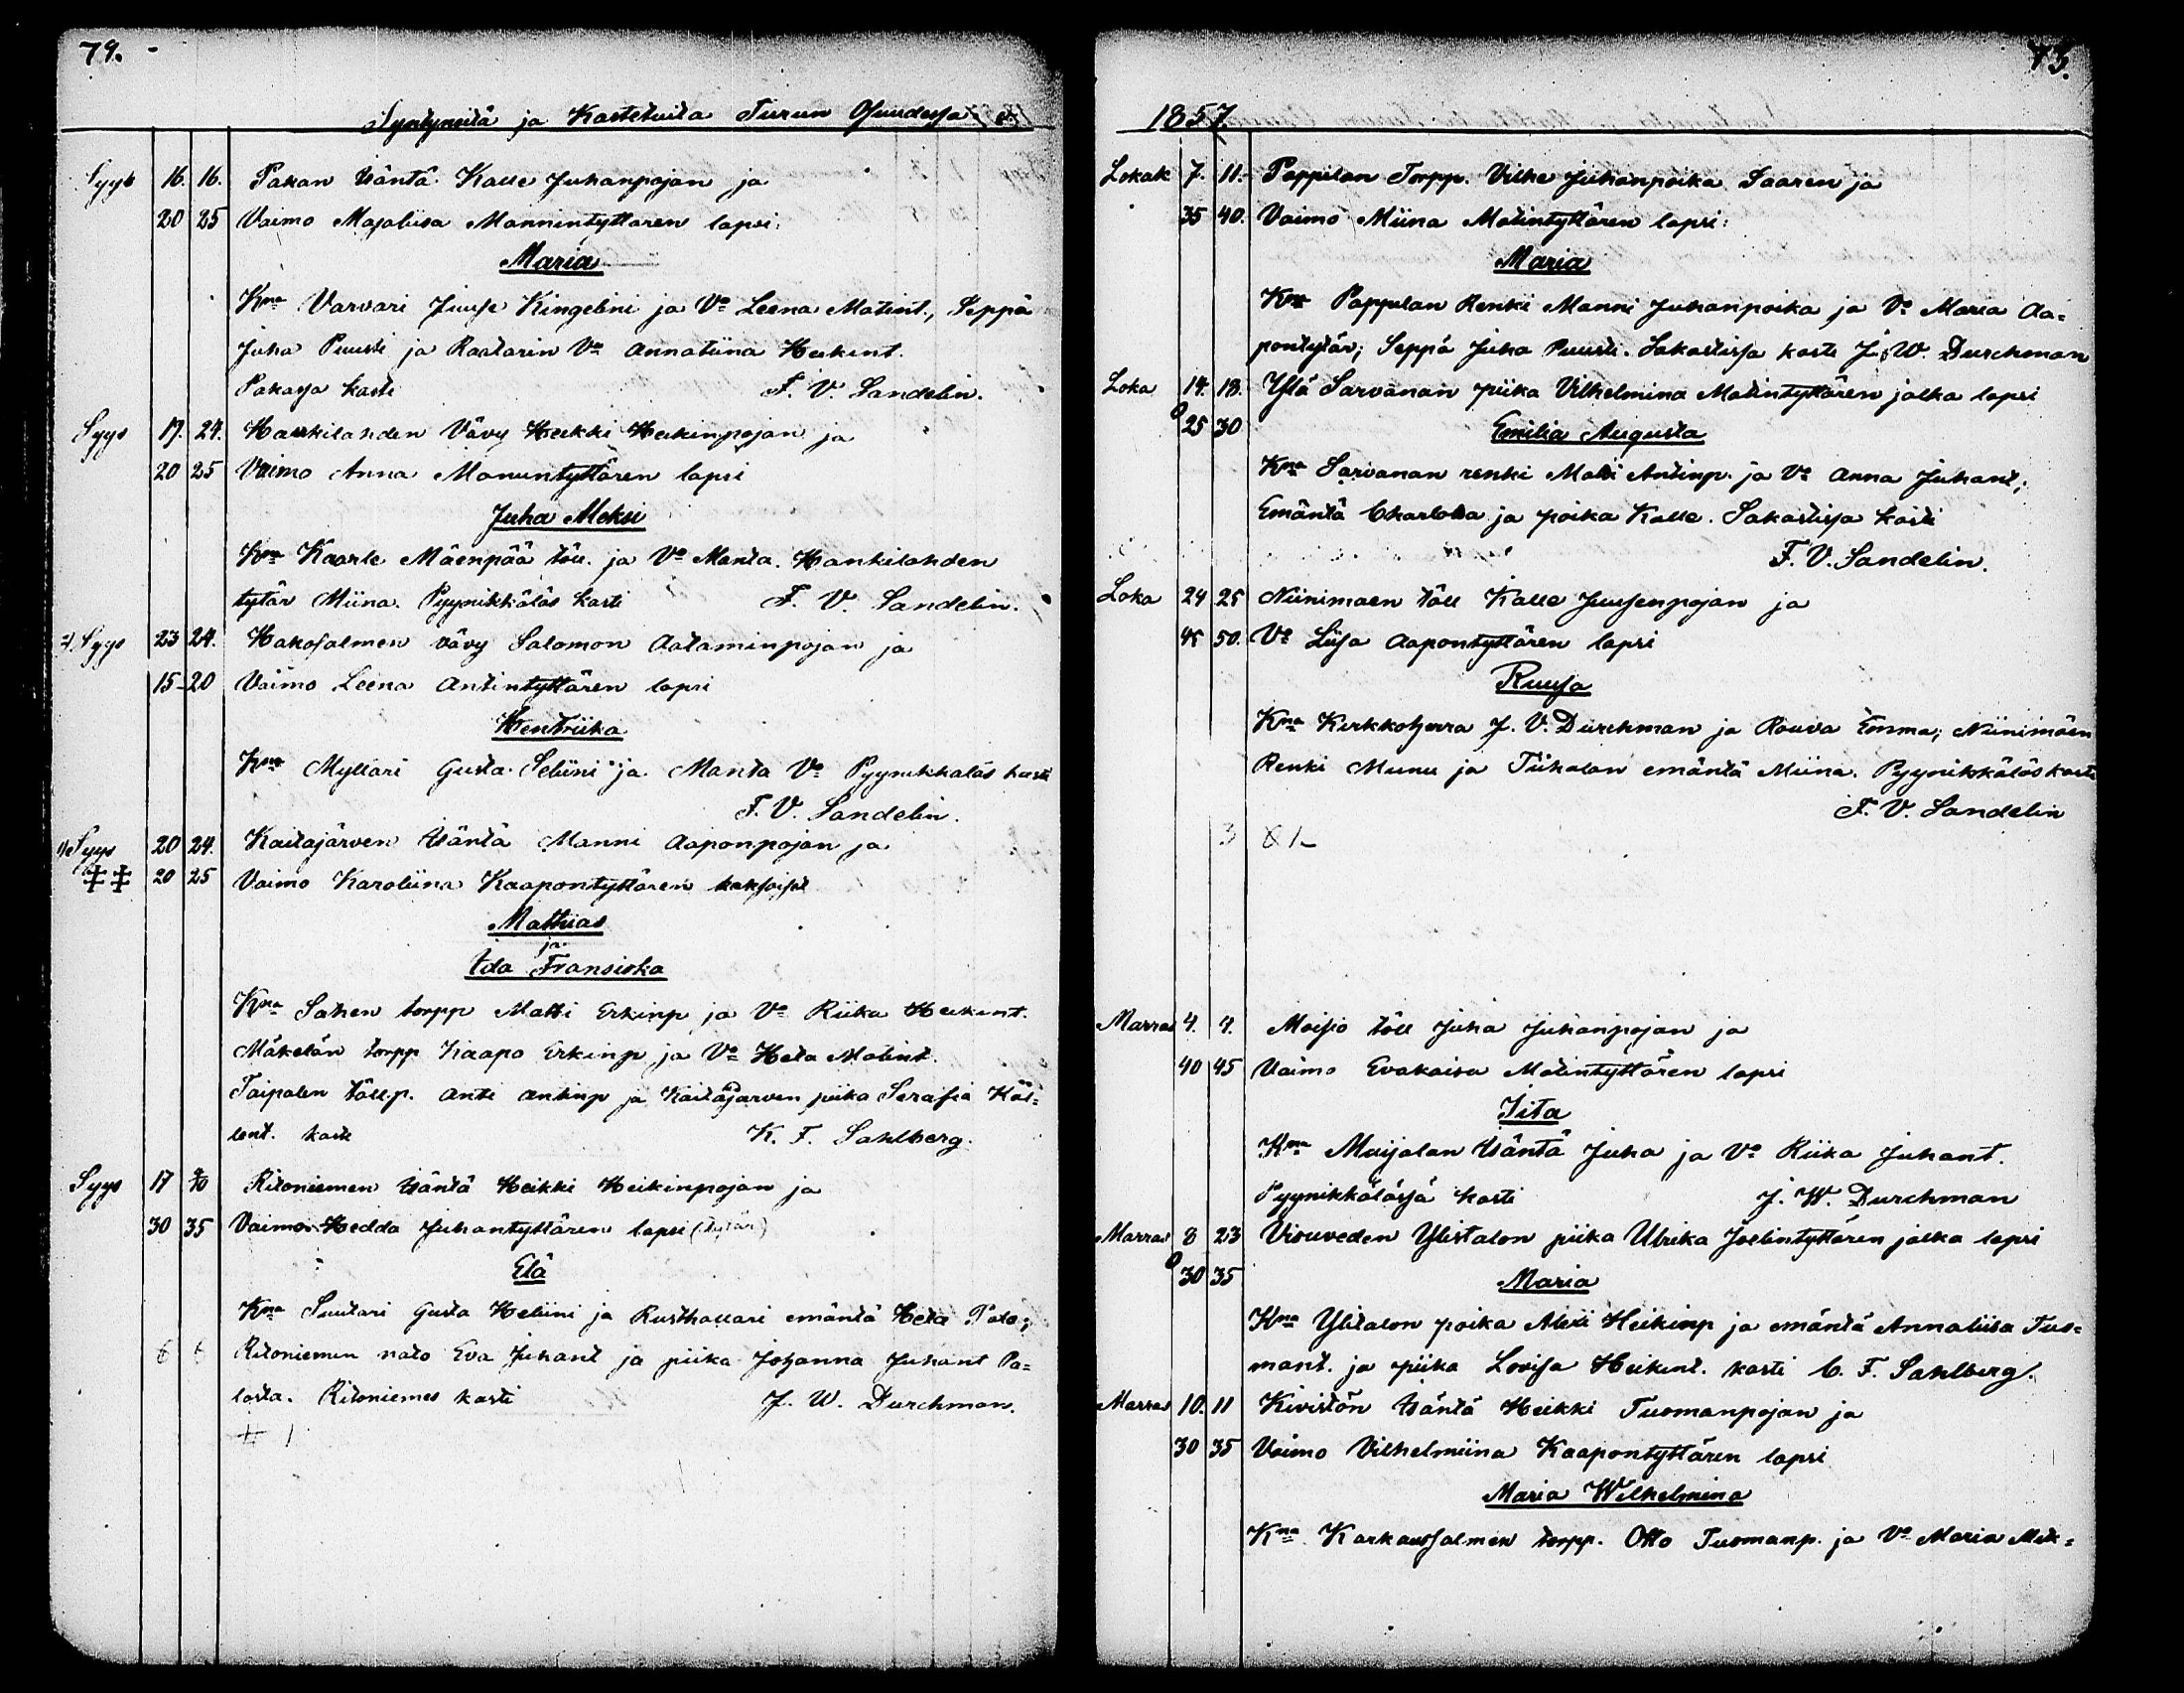 74.
Syntyneitä ja Kastetuita Turun Osuudessa
Syys 16. 16. Pakan Isäntä Kalle Juhanpojan ja
20 25 Vaimo Majaliisa Mannintyttären lapsi:
Maria
Kna Varvari Juuse Kingelini ja Vo Leena Matint., Seppä
Juha Puusti ja Raatarin Vo Annatiina Heikint.
Pakassa kasti F. V. Sandelin.
Syys 17. 24. Hankilahden Vävy Heikki Heikinpojan ja
20 25 Vaimo Anna Manuntyttären lapsi
Juha Aleksi
Kna Kaarle Mäenpää töll. ja Vo Manta. Hankilahden
tytär Miina. Pyynikkäläs kasti F. V. Sandelin.
2) Syys 23 24. Hakosalmen vävy Salomon Aataminpojan ja
15-20 Vaimo Leena Antintyttären lapsi
Hentriika
Kna Myllari Gusta Seliini ja Manta Vo Pyynikkäläs kasti
F. V. Sandelin.
1) Syys 20 24. Kaitajärven Isäntä Manni Aaponpojan ja
‡ ‡ 20 25 Vaimo Karoliina Kaapontyttären kaksoiset
Mattias
ja
Ida Fransiska
Kna Sahen torpp Matti Erkinp ja Vo Riika Heikint.
Mäkelän torpp Kaapo Erkinp ja Vo Heta Matint.
Taipalen töll.p. Anti Antinp ja Kaitajärven piika Serafia Käl=
lent. kasti K. F. Sahlberg.
Syys 17 4/10 Ritoniemen Isäntä Heikki Heikinpojan ja
30 35 Vaimo Hedda Juhantyttären lapsi (tytär)
Elä
Kna Suutari Gusta Heliini ja Rusthollari emäntä Heta Palo;
6 6 Ritoniemen nato Eva Juhant ja piika Johanna Juhant Pa=
losta. Ritoniemes kasti J. W. Durchman.
# 1
75.
1857.
Lokak 7. 11. Pappilan Torpp. Vilhe Juhanpoika Saaren ja
35 40. Vaimo Miina Matintyttären lapsi:
Maria
Kna Pappilan Renki Manni Juhanpoika ja Vo Maria Aa=
pontytär; Seppä Juha Puusti. Sakastissa kasti J. W. Durchman
Loka 14. 18. Ylä Sarvanan piika Vilhelmina Matintyttären jalka lapsi
25 30 Emilia Augusta
Kna Sarvanan renki Matti Antinp. ja Vo Anna Juhant,
Emäntä Charlotta ja poika Kalle. Sakastissa kasti
F. V. Sandelin.
Loka 24 25 Niinimaen töll Kalle Juusenpojan ja
45 50. Vo Liisa Aapontyttären lapsi
Ruusa
Kna Kirkkoherra J. V. Durchman ja Rouva Emma; Niinimäen
Renki Munu ja Tiihalan emäntä Miina. Pyynikkäläs kasti
F. V. Sandelin
3
Marras 4. 4. Moisio töll Juha Juhanpojan ja
40 45 Vaimo Evakaisa Matintyttären lapsi
Iita
Kna Muijalan Isäntä Juha ja Vo Riika Juhant.
Pyynikkälässä kasti J. W. Durchman
Marras 8 23 Visuveden Ylistalon piika Ulrika Joelintyttären jalka lapsi
30 35 Maria
Kna Ylitalon poika Aleksi Heikinp ja emäntä Annaliisa Tuo=
mant. ja piika Lovisa Heikint. kasti C. F. Sahlberg.
Marras 10. 11 Kivistön Isäntä Heikki Tuomanpojan ja
30 35 Vaimo Vilhelmiina Kaapontyttären lapsi
Maria Wilhelmina
Kna Karkaussalmen torpp. Otto Tuomanp. ja Vo Maria Mik=